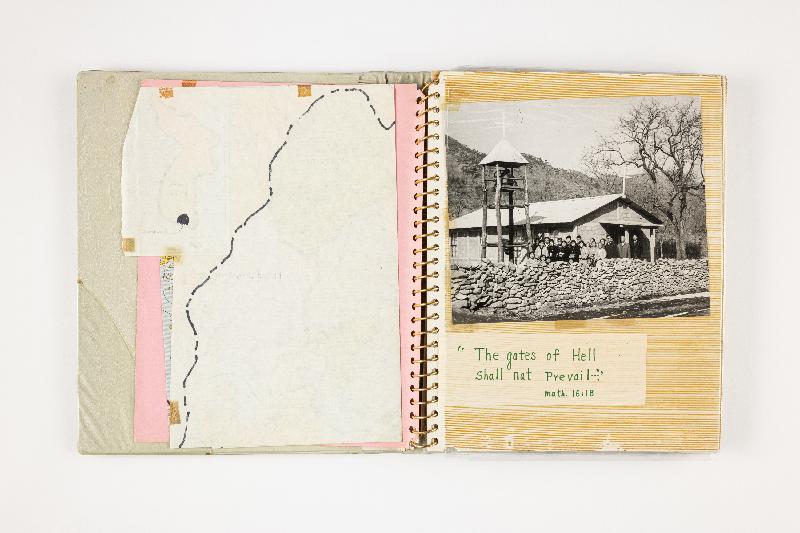 " The gates of Hell
Shall not Prevail--"
math. 16:18